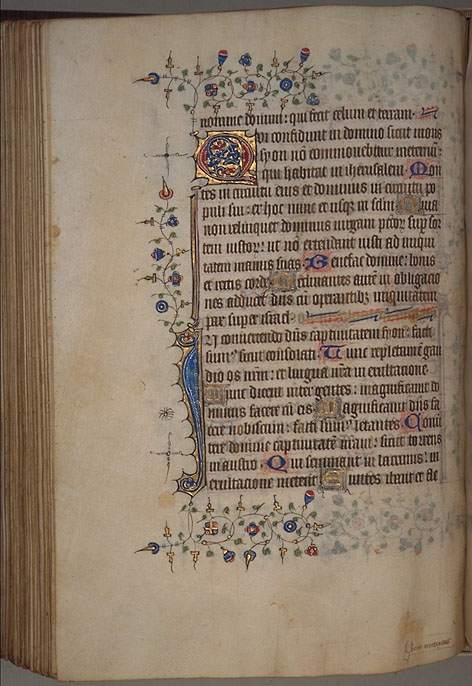 nomine domini: qui fecit celum et terram.
Qui confidunt in domino sicut mons
syon nō commovebitur in eternū:
qui habitat in iherusalem. Mon
tes in circuitu eius et dominus in circuitu po
puli sui: et hoc nunc et usqꝫ in sclm. Quia
non relinquet dominus virgam pctōr super sor
tem iustor: ut nō extendant iusti ad iniqui
tatem manus suas. Benefac domine: bonis
et rectis corde. Declinantes autē in obligacio
nes adducet dn̄s cū operantibꝫ iniquitatem
pax super israel.
In convertendo dn̄s captivitatem syon: facti
sumꝰ sicut consolati. Tunc repletum gau
dio os nrm: et lingua nra in exultacione
Tunc dicent inter gentes: magnificavit do
minus facere cū eis. Magnificavit dn̄s fa
cere nobiscum: facti sumꝰ letantes. Conū
tere domine captivitatē nram: sicut torrens
in austro. Qui seminant in lacrimis: in
exultacione metent. Euntes ibant et fle